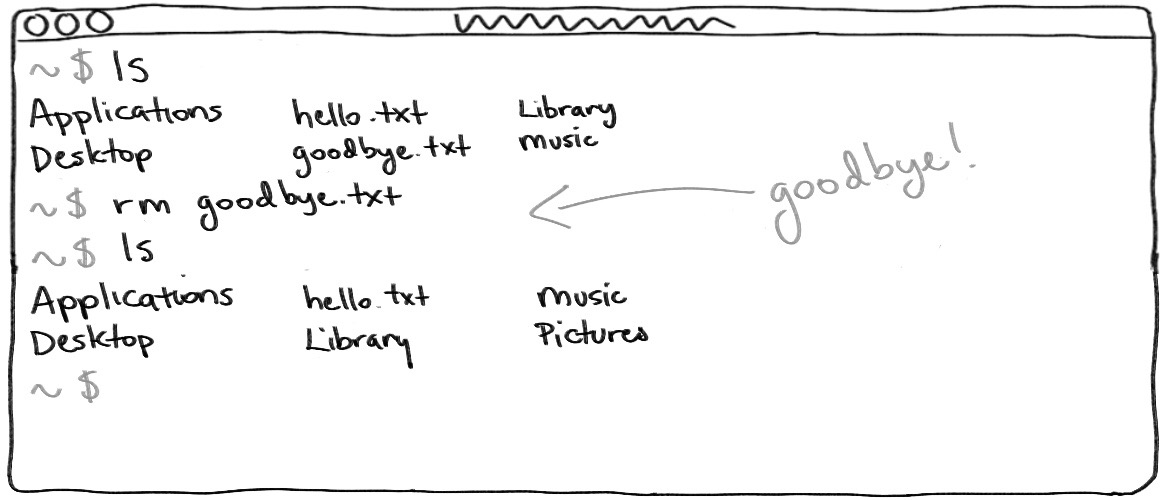 ~ $ ls
Applications hello.txt Library
Desktop goodbye.txt music
~ $ rm goodbye.txt
goodbye!
~ $ ls
Applications hello.txt music
Desktop Library Pictures
~ $